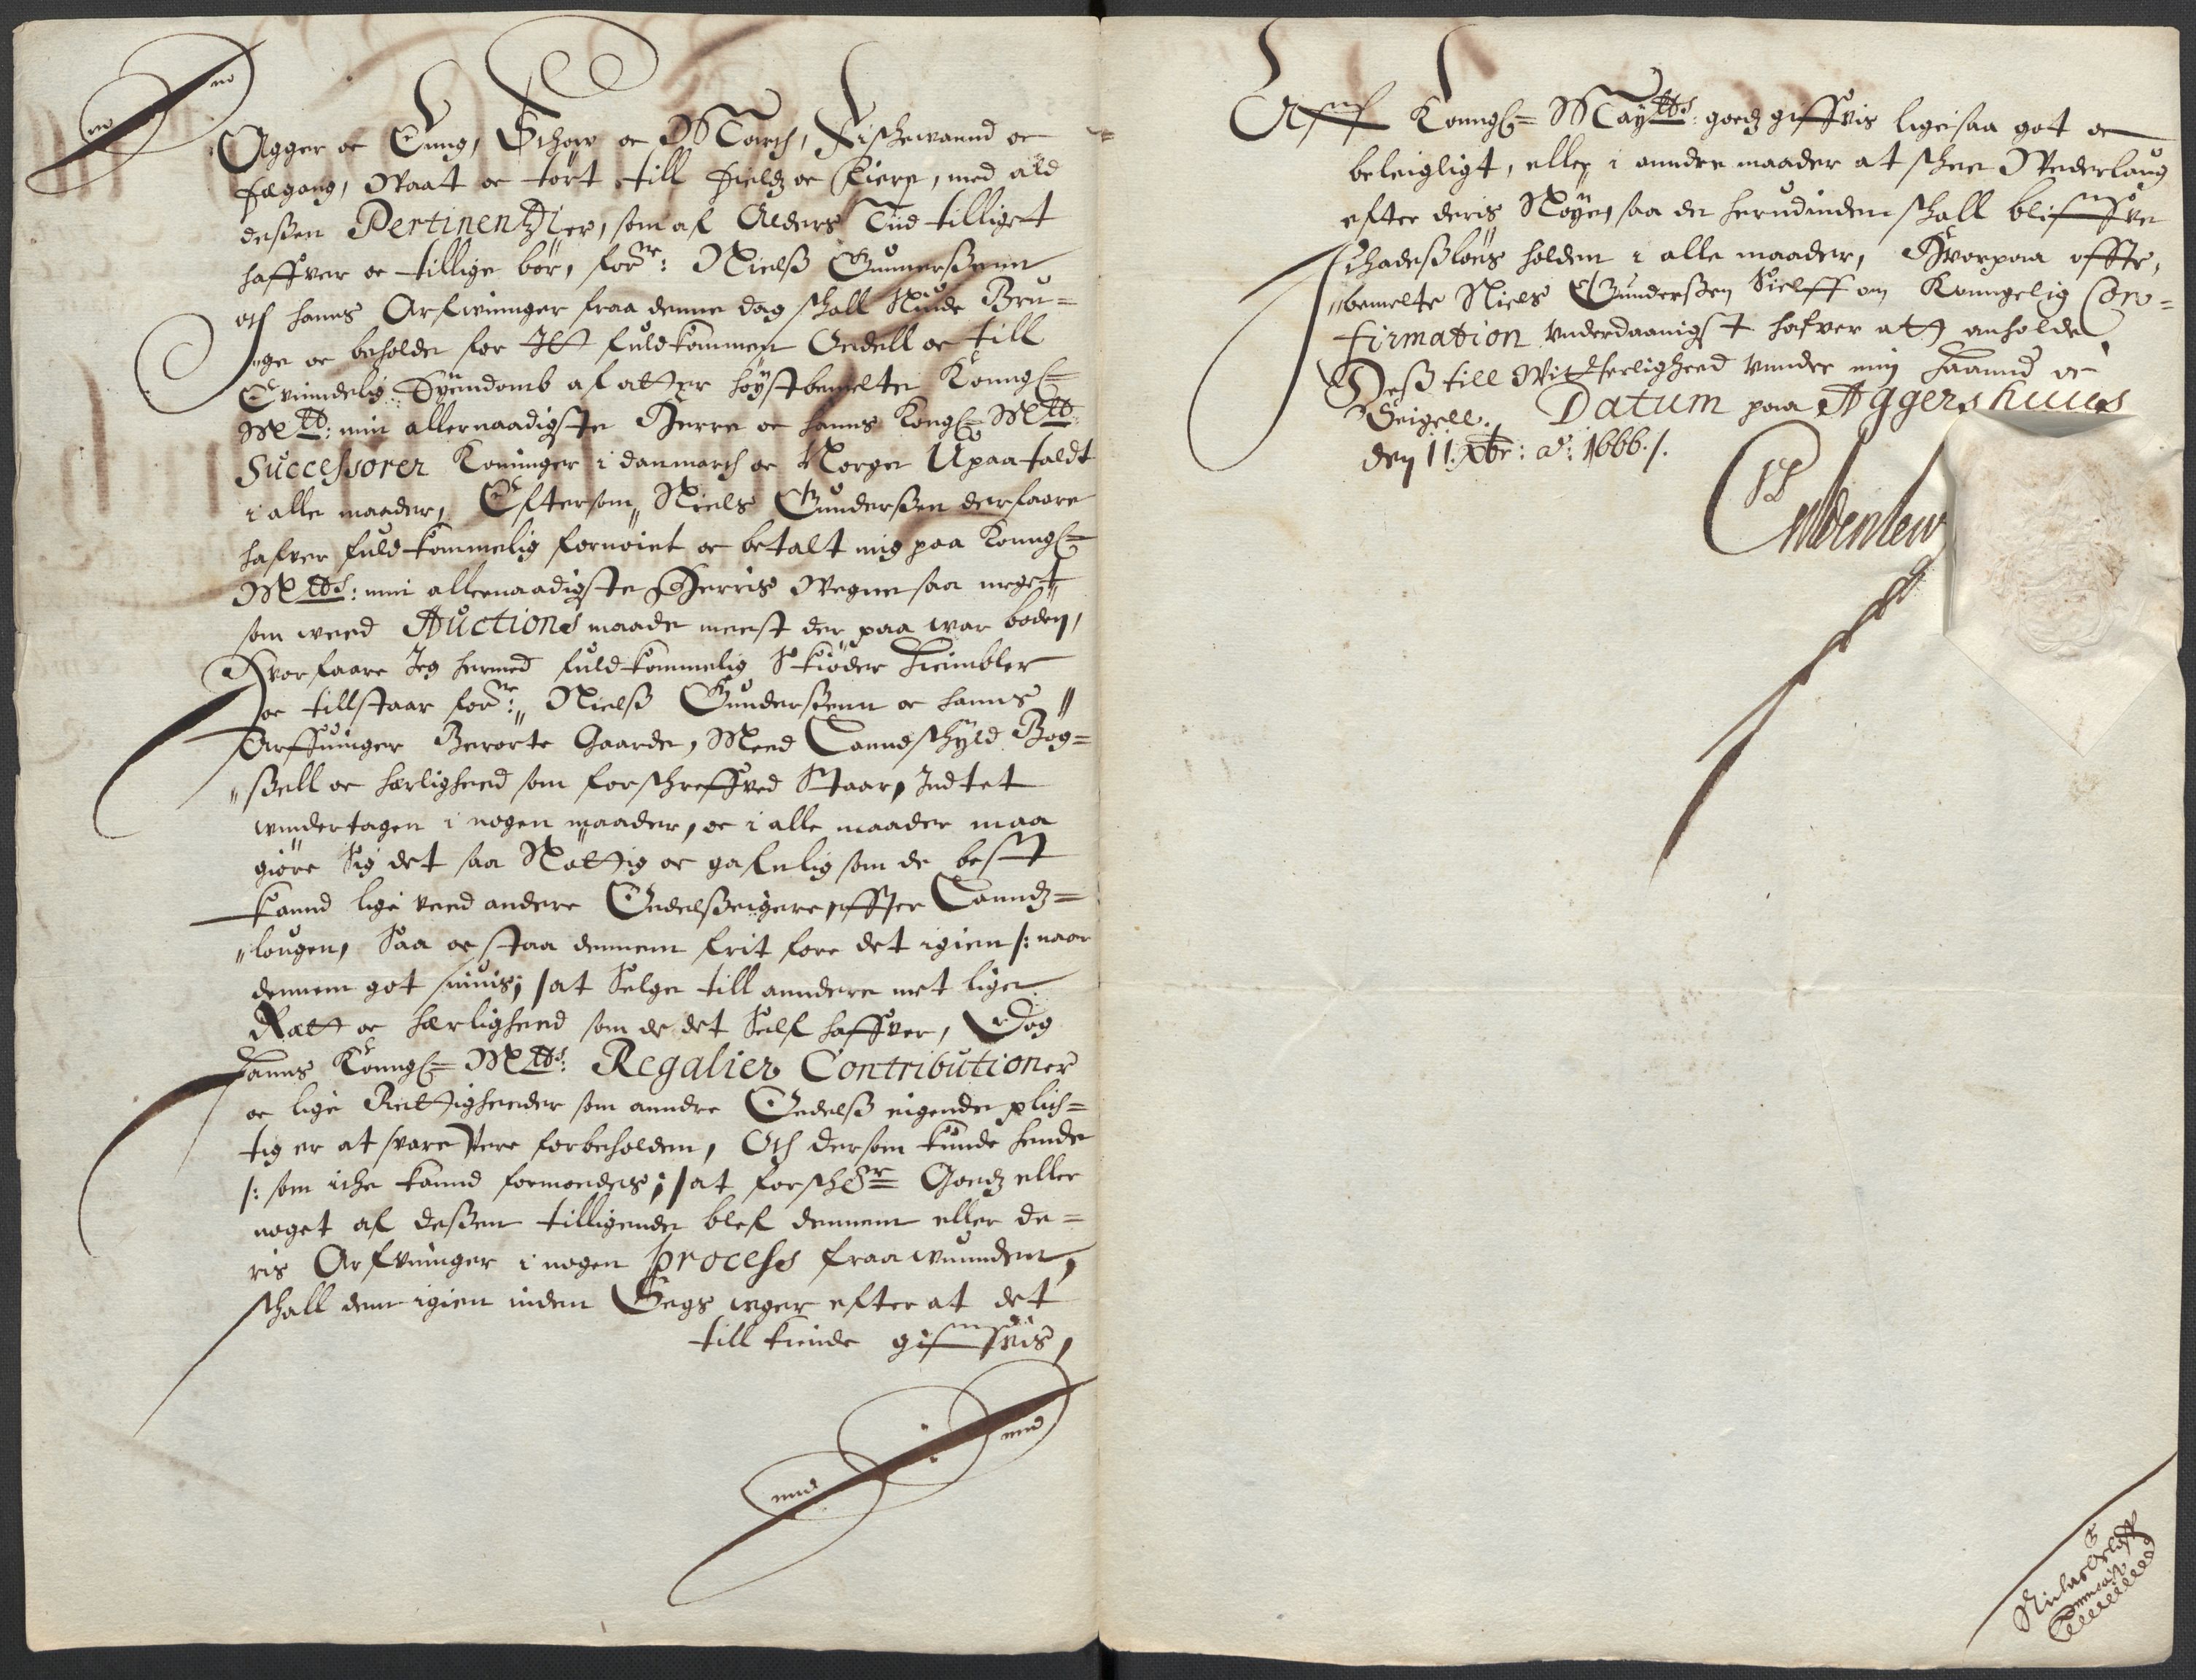 Agger oc Enng, Schow oc March, Fischevannd oc
fægang, Waat oc tört till Fieldz oc Fiere, med ald
deßen Pertinentzier, som af Alders Tiid tilliget
haffver oc tillige bör, forne: Nielß Gunnerßenn
och hanns Arfvinnger fraa denne dag schall Niude Bru=
ge oc beholde for Itt fuldkommen Odell oc till
Evinndelig Eyendomb af atter höystbemelte Konngl=
Mtt: min allernaadigste Herre oc hanns Kongl= Mtt:
Successorer Koninger i danmarch oc Norge Upaataldt
i alle maader, Eftersom Niels Gunderßen derfaare
hafver fuldkommelig fornöiet oc betalt mig paa Konngl=
Mtts: min allernaadigste Herris Wegne saa meget
som weed Auctions maade meest der paa war boden,
Hvorfaare Jeg hermed fuldkommelig Skiöder Heimbler
oc tillstaar forne: Nielß Gunderßenn oc hanns
Arffvinger Berörte Gaarde, Meed Lanndschyld Bög=
ßell oc herligheed som forschreffved Staar, Indtet
wndertagen i nogen maader, oc i alle maader maa
giöre Sig det saa Nøttig oc gafnlig som de best
kannd lige veed andere Odelßeigere effter Lanndz=
lougen, Saa oc staa dennem frit fore det igien /: naar
dennem got siunis; / at Selge till anndere met lige
Rætt oc herligheed som de det Self haffver, Dog
hanns Konngl= Mtts: Regalier Contributioner
oc lige Rettigheeder som anndre Odelß eigende plich=
tig er at svare Vere forbeholden, Och dersom kunde hende
/: som iche kannd formodes; / at forschr= Goedz eller
noget af deßen tilligende blef dennem eller de=
ris Arfvinger i nogen process fraawunnden,
schall dem igien inden Sex uger efter at det
till kiende gifvis,
Aff Konngl= Maytts: goedz giffvis ligesaa got oc
beleigligt, eller i anndre maader at schee Wederlaug
efter deris Nöye, saa de herudinden schall bliffve
schadeßlöes holden i alle maader, Hvorpaa offte,
bemelte Niels Gunderßen Sielff om Konngelig Con=
firmation vnderdaanigst hafver att anholde
Deß till Witterligheed vunder min Haannd oc
Seigell. Datum paa Aggershuus
den 11. Xbr: ao: 1666./.